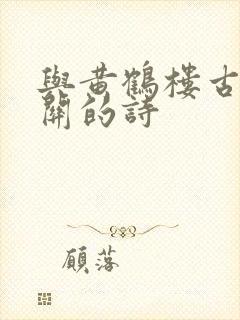 與黃鶴樓古
關的詩
顧落